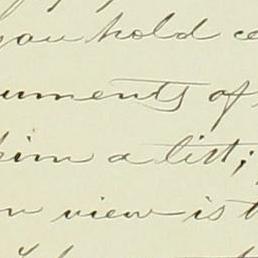 you hold ce
uments of
him a list;
n view is t